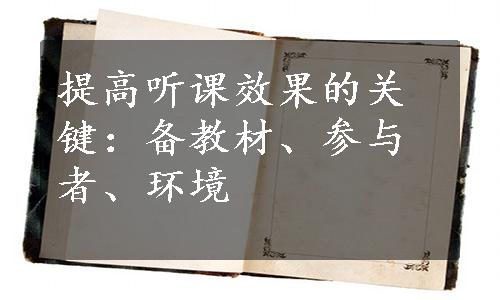 提高听课效果的关
键：备教材、参与
者、环境